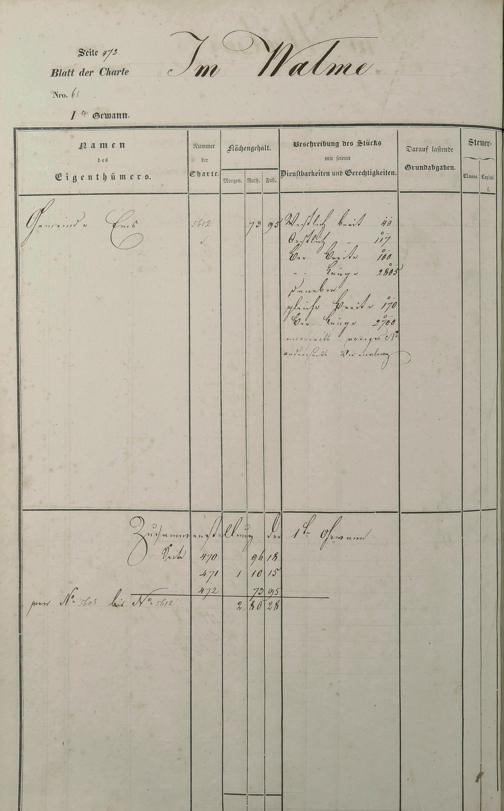 Seite 473
Blatt der Charte
Nro. 65
1te Gewann.
Im Walme
Namen
des
Eigenthümers.
Nummer
der
Charte.
Flächengehalt.
Morgen. Ruth. Fuß.
Beschreibung des Stücks
mit seinen
Dienstbarkeiten und Gerechtigkeiten.
Darauf lastende
Grundabgaben.
Steuer-
Classe. Capital
Gemeinde Ems 1612 73 95 Westlich breit 40
Oestlich " 117
Die Breite 100
" Länge 2805
daneben
gleiche Breite 170
Die Länge 2700
Zusammenstellung der 1te Gewann
Seite 470 96 18
471 1 10 15
472 73 95
von No. 1603 bis No. 1612 2 80 28